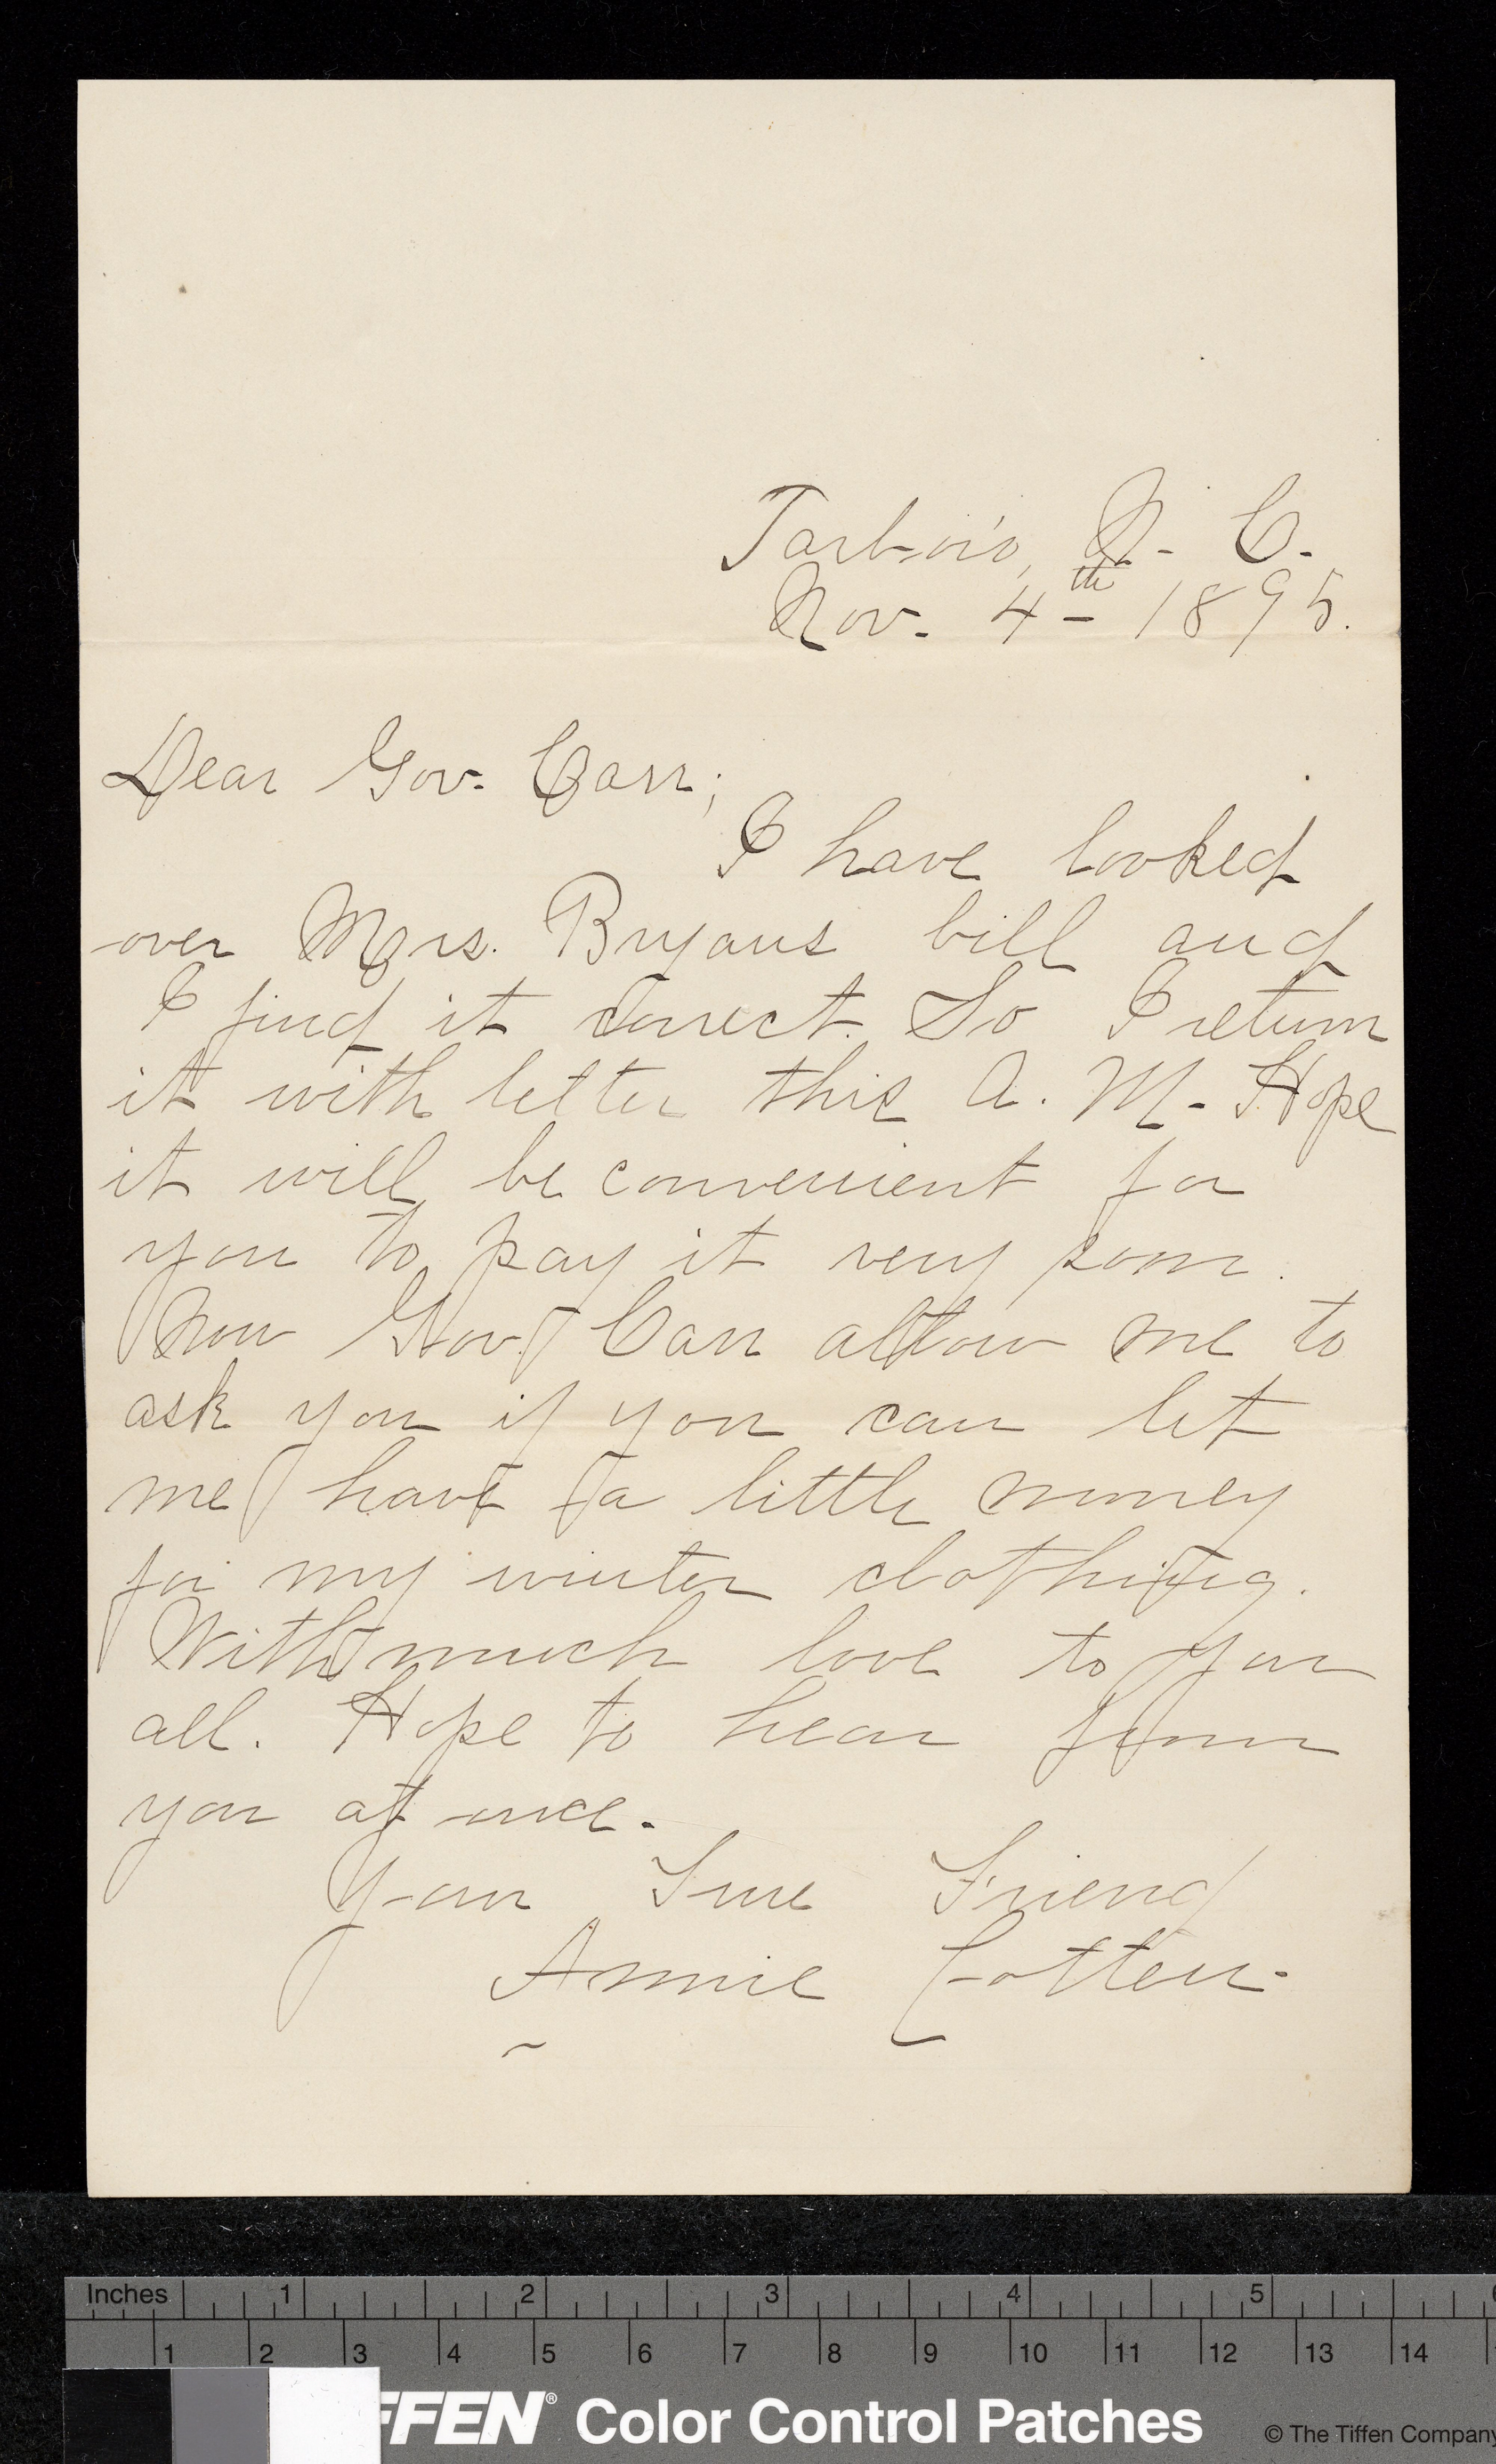 Tarboro, N. C.
Nov. 4th 1895.
Dear Gov. Carr;
I have looked
over Mrs. Bryans bill and
I find it correct. So I return
it with letter this A. M. Hope
it will be convenient for
you to pay it very soon.
Now Gov. Carr allow me to
ask you if you can let
me have a little money
for my winter clothing.
With much love to you
all. Hope to hear from
you at once.
Your True Friend
Annie Cotten.
Inches 1 2 3 4 5
1 2 3 4 5 6 7 8 9 10 11 12 13 14
FFEN® Color Control Patches © The Tiffen Company